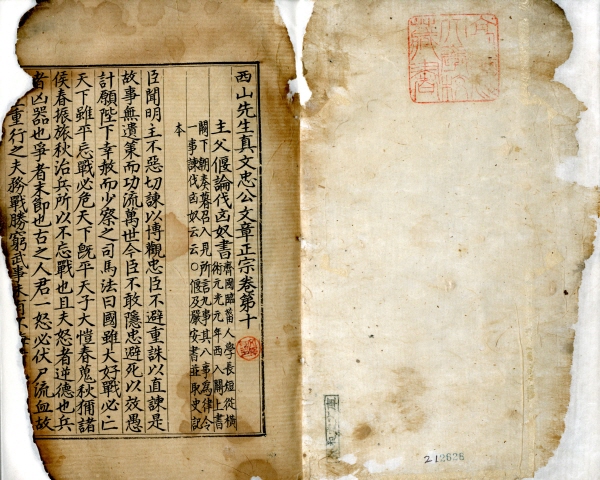 西山先生真文忠公文章正宗卷第十
主父偃論伐匈奴書
齊國臨菑人學長短從橫
術元光元年西入關上書
闕下朝奏暮召入見所言九事其八事為律令
一事諫伐匈奴云云○偃及嚴安書並取史記
本
臣聞明主不惡切諫以博觀忠臣不避重誅以直諫是
故事無遺策而功流萬世今臣不敢隱忠避死以效愚
計願陛下幸赦而少察之司馬法曰國雖大好戰必亡
天下雖平忘戰必危天下既平天子大愷春蒐秋獮諸
侯春振旅秋治兵所以不忘戰也且夫怒者逆德也兵
者凶器也爭者末節也古之人君一怒必伏尸流血故
重行之夫務戰勝窮武事
藏書
212626